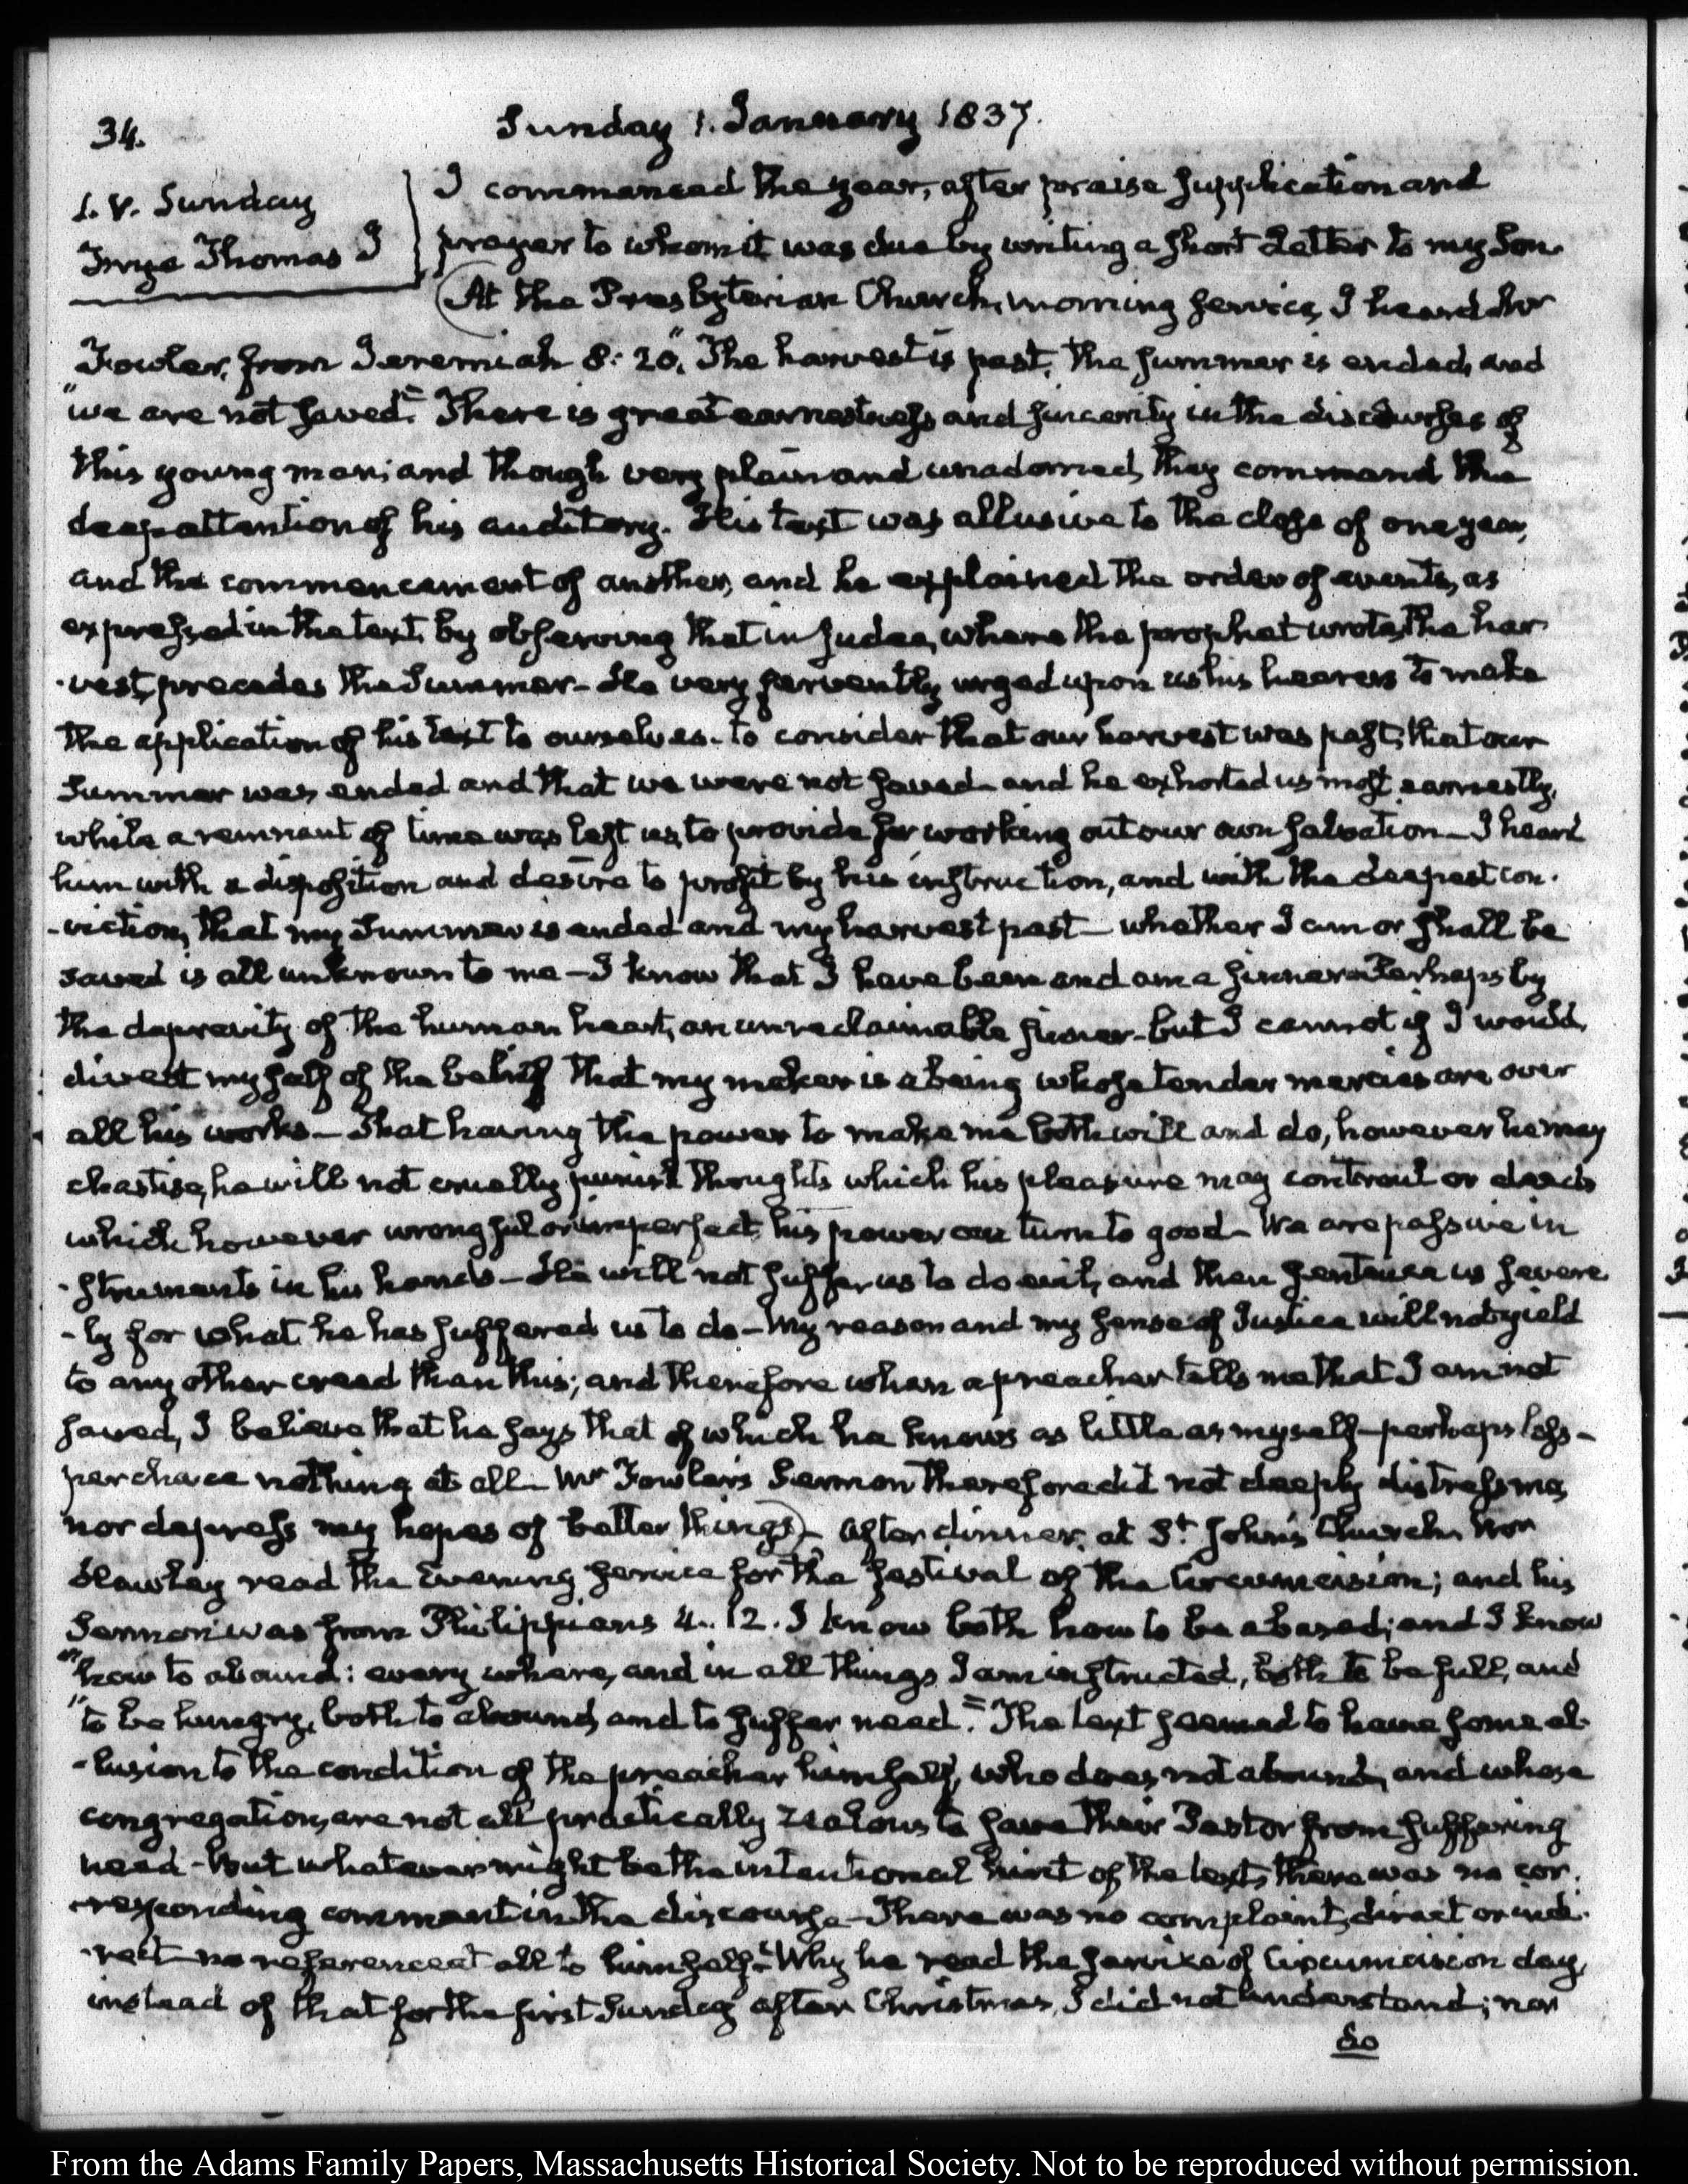 34.
Sunday 1. January 1837.
1. V. Sunday
Frye Thomas J
I commenced the year, after praise supplication and
prayer to whom it was due by writing a short Letter to my Son.
At the Presbyterian Church, morning service, I heard Mr
Fowler, from Jeremiah 8: 20. "The harvest is past, the summer is ended, and
"we are not saved." There is great earnestness and sincerity in the discourses of
this young man; and though very plain and unadorned, they command the
deep attention of his auditory. His text was allusive to the close of one year,
and the commencement of another, and he explained the order of events, as
expressed in the text, by observing that in Judea, where the prophet wrote, the har-
-vest, precedes the Summer- He very fervently urged upon us his hearers to make
the application of his text to ourselves- to consider that our harvest was past, that our
Summer was ended and that we were not saved- and he exhorted us most earnestly,
while a remnant of time was left us, to provide for working out our own salvation- I heard
him with a disposition and desire to profit by his instruction, and with the deepest con-
-viction, that my Summer is ended and my harvest past- whether I am or shall be
saved is all unknown to me- I know that I have been and am a sinner- Perhaps by
the depravity of the human heart, an unreclaimable sinner- but I cannot if I would,
divest myself of the belief that my maker is a being whose tender mercies are over
all his works- That having the power to make me both will and do, however he may
chastise, he will not cruelly punish thoughts which his pleasure may controul or deeds
which however wrongful or imperfect, his power can turn to good- We are passive in
-struments in his hands- He will not suffer us to do evil, and then sentence us severe
-ly for what he has suffered us to do- My reason and my sense of Justice will not yield
to any other creed than this; and therefore when a preacher tells me that I am not
saved, I believe that he says that of which he knows as little as myself- perhaps less-
perchance nothing at all- Mr Fowler's Sermon therefore did not deeply distress me,
nor depress my hopes of better things)- After dinner, at St. John's Church, Mr
Hawley read the Evening service for the festival of the Circumcision; and his
Sermon was from Philippians 4. 12. I know both how to be abased; and I know
"how to abound: every where, and in all things I am instructed, both to be full, and
"to be hungry, both to abound, and to suffer need." The text seemed to have some al-
-lusion to the condition of the preacher himself, who does not abound, and whose
congregation, are not all practically zealous to save their Pastor from suffering
need- But whatever might be the intentional hint of the text, there was no cor-
-responding comment in the discourse- There was no complaint, direct or indi-
-rect- no reference at all to himself- Why he read the service of Circumcision day,
instead of that for the first Sunday after Christmas, I did not understand; nor
do
From the Adams Family Papers, Massachusetts Historical Society. Not to be reproduced without permission.